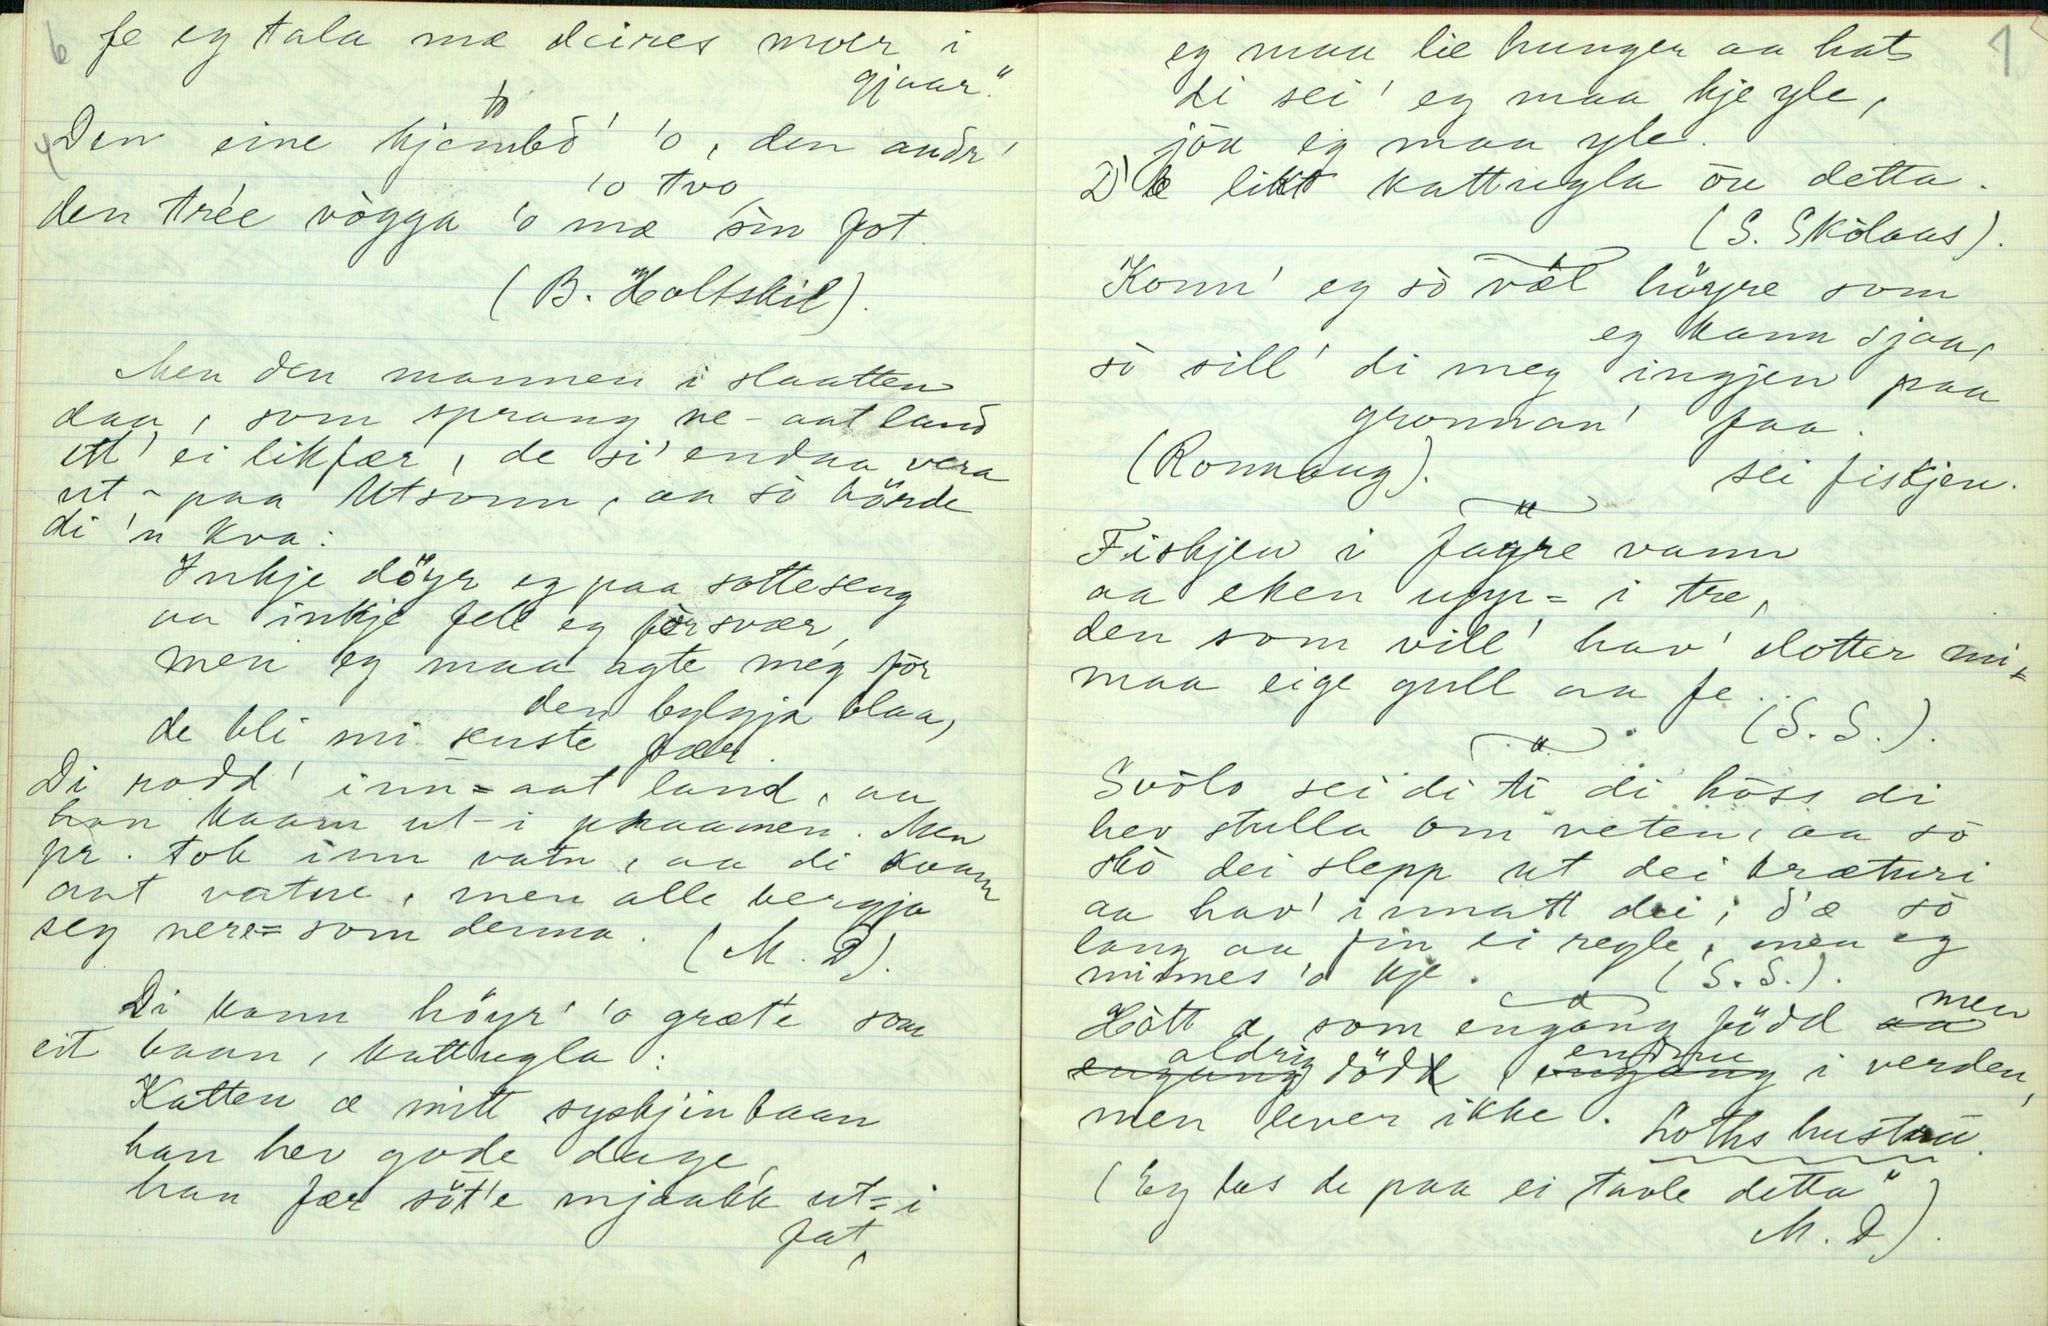 6
fe eg tala mæ deires moer i
gjaar."
Den eine kjembd' 'o, den andr'
'o tvo,
den tree vògga 'o mæ sin fot.
(B. Holtskil).
Men den mannen i slaatten
daa, som sprang ne-aat land
ett' ei likfær, de si' endaa vera
ut-paa Utsonn, aa sò hörde
di 'n kva:
Inkje döyr eg paa sotteseng
aa inkje fell eg fòr svær,
men eg maa agte meg fòr
den bylgja blaa,
de bli mi senste fær.
Di rodd' inn=aat land, aa
han kaam ut-i praamen. Men
pr. tok inn vatn, aa di kvam
aat vatne, men alle bergja
seg nere=som denna. (M. D).
Di kann höyr' 'o græte som
eit baan, kattugla:
Katten æ mitt syskjinbaan
han hev gode dage,
han fær söt'e mjaalk ut=i
fat,
7
eg maa lie hunger aa hat
di sei' eg maa kje yle,
jöa eg maa yle.
D'e likt kattugla öu detta.
(S. Skòlaas).
Konn' eg sò væl höyre som
eg kann sjaa,
sò sill' di meg ingjen paa
gronnan' faa.
(Ronnaug). sei fiskjen.
Fiskjen i fagre vann
aa eken upp=i tre,
den som vill' hav' dotter mi
maa eige gull aa fe.
(S. S.).
Svòlo sei di ti di höss di
hev stulla om veten, aa sò
skò dei slepp ut dei kræturi
aa hav' innatt dei; d'æ sò
lang aa fin ei regle, men eg
minnes 'o kje. (S. S.).
Hòtt æ som engang född aa men
engang aldrig död, engang endnu i verden,
men lever ikke. Loths hustru.
(Eg las de paa ei tavle detta"
M. D).